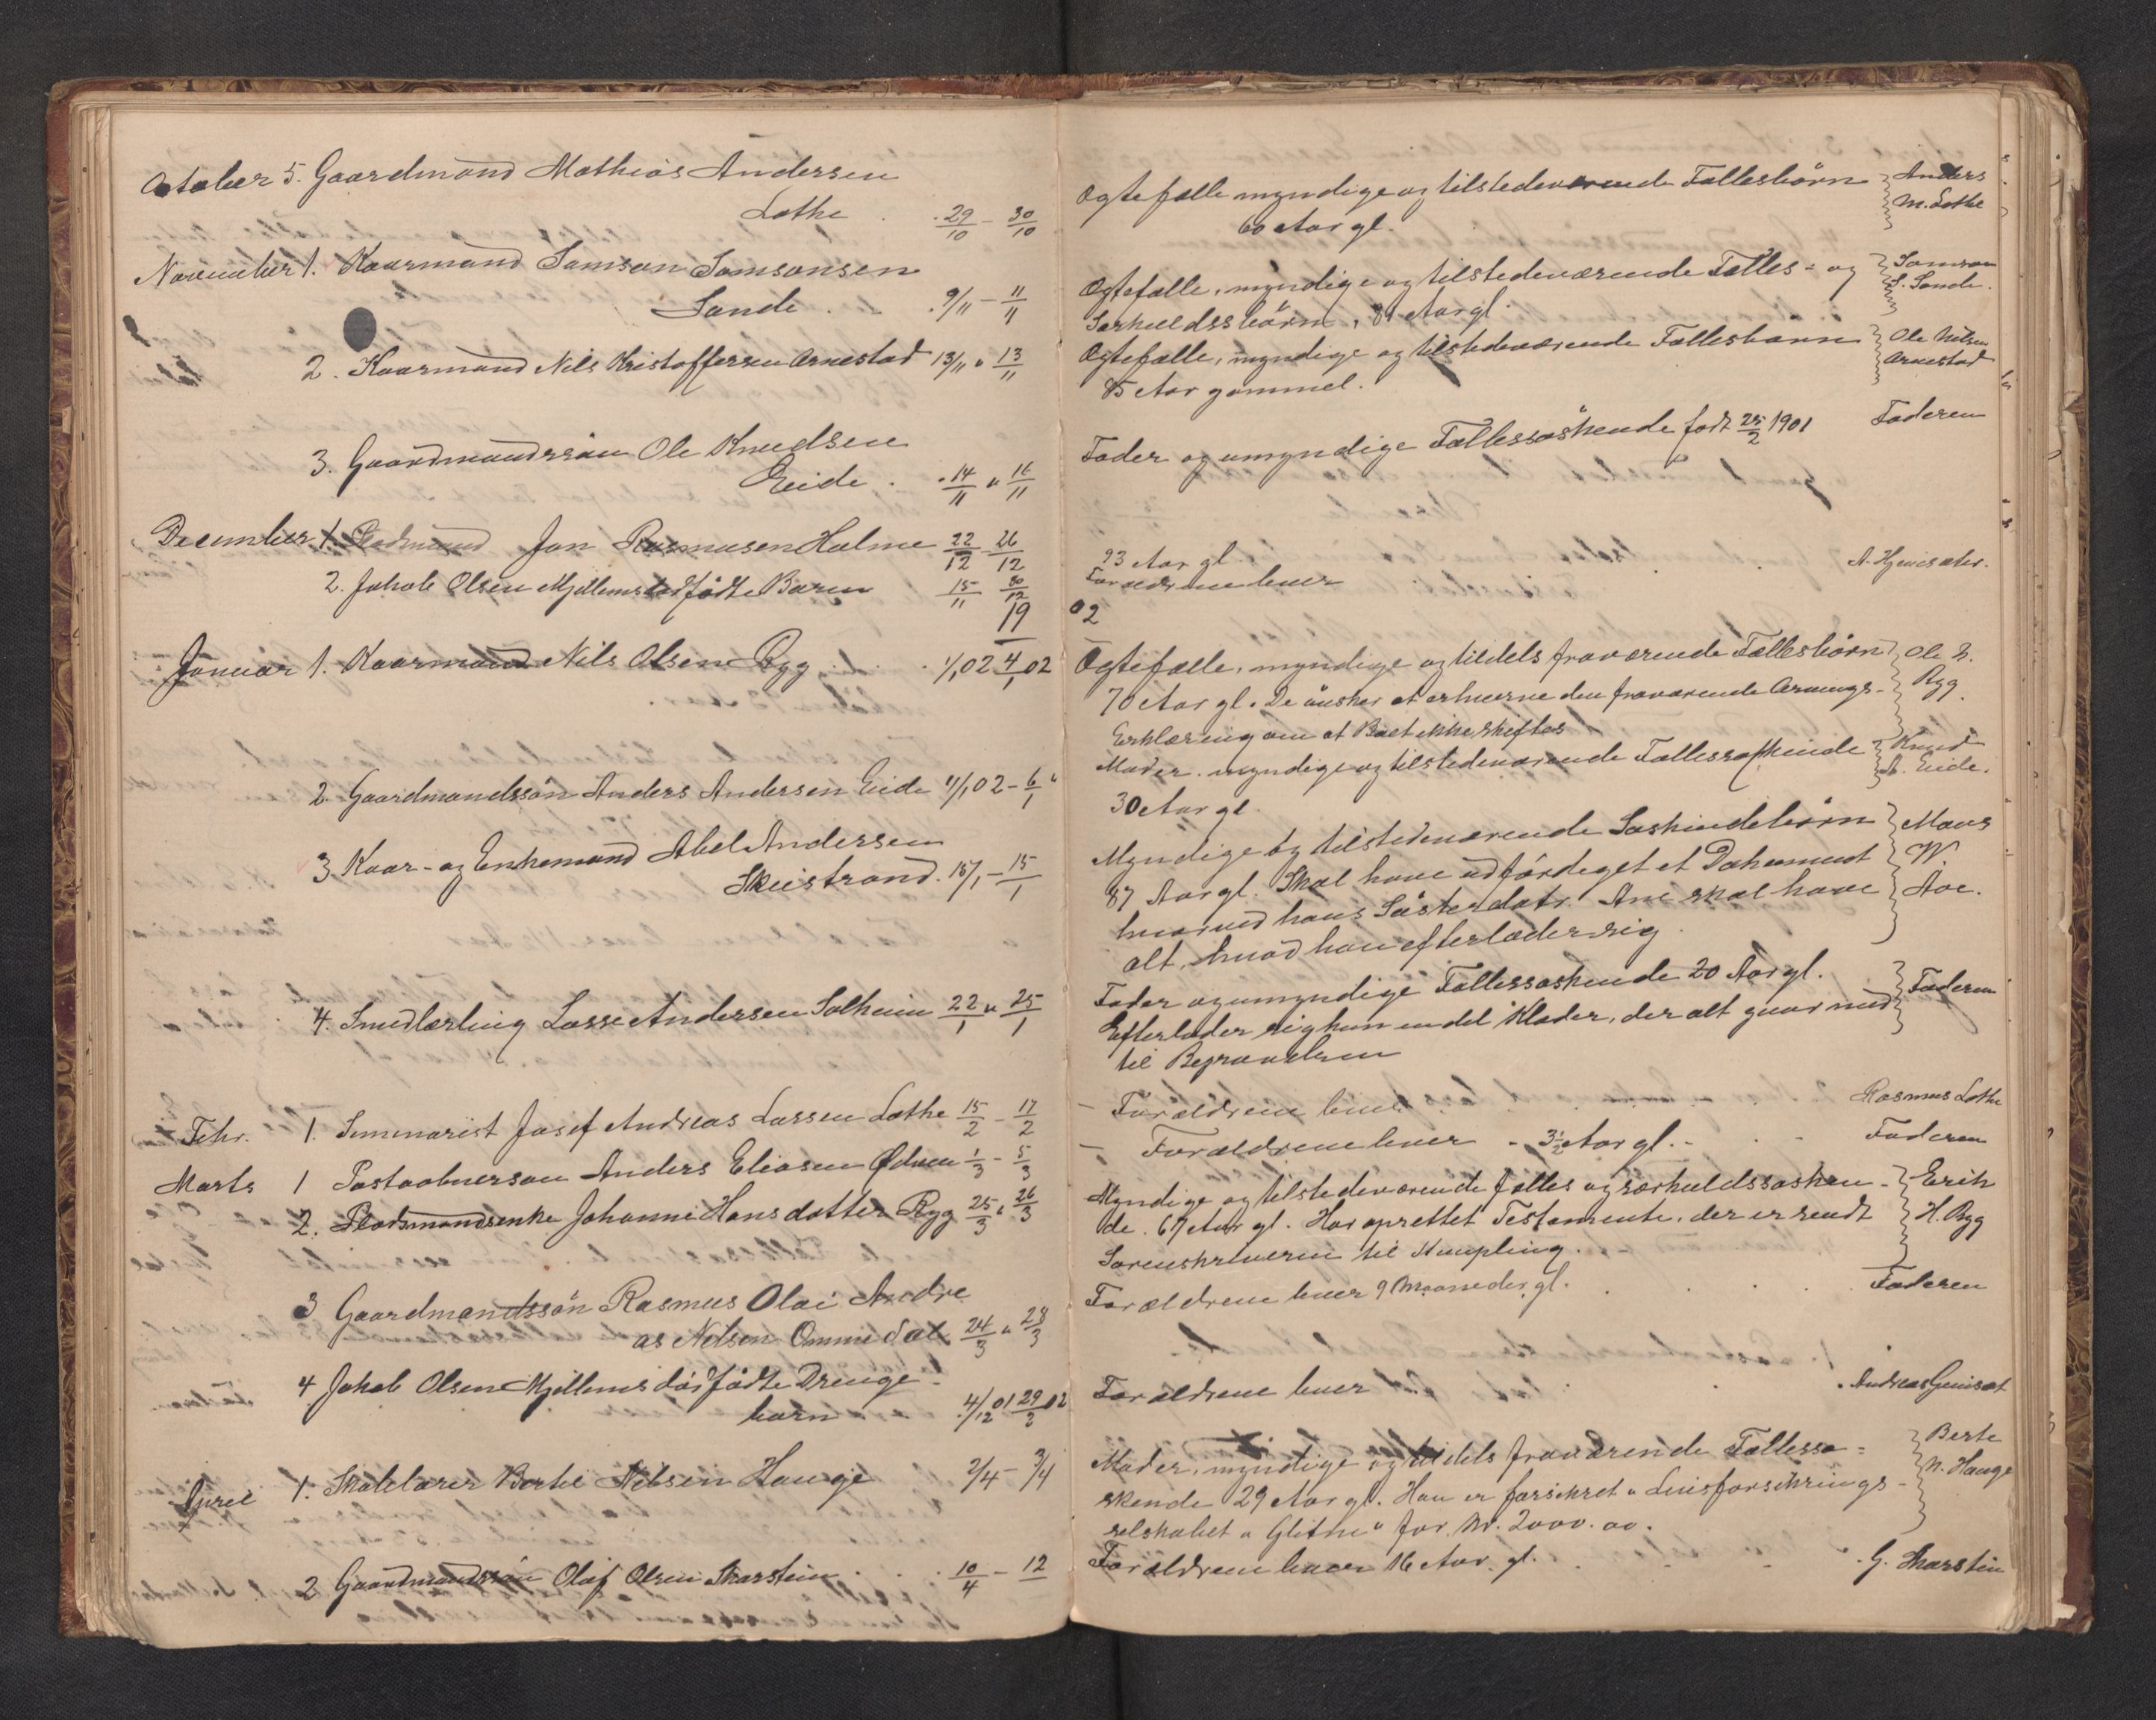 October 5. Gaardmand Mathias Andersen
Lothe . . 29/10 - 30/10
November 1. Kaarmand Samson Samsonsen
Sande . . 9/11 - 11/11
2. Kaarmand Nils Kristoffersen Arnestad 13/11 " 13/11
3. Gaardmandssøn Ole Knudsen
Eide . . 14/11 " 16/11
December 1. Pladsmand Jon Rasmusen Holme 22/12 26/12
2. Jakob Olsen Mjellems dødfødte Barn 15/11 30/12
19
Januar 1. Kaarmand Nils Olsen Ryg . . . 1/1 02 4/1 02
2 Gaardmandssøn Anders Andersen Eide "/1 02 - 6/1 "
3 Kaar- og Enkemand Abel Andersen
Skeistrand. 15/1 - 15/1
4. Smedlærling Lasse Andersen Solheim 22/1 " 25/1
Febr. 1. Seminarist Josef Andreas Lassen Lothe 15/2 - 17/2
Marts 1 Postaabnersøn Anders Eliasen Ødven 1/3 - 5/3
2. Pladsmandsenke Johanne Hansdatter Ryg 25/3 " 26/3
3 Gaardmandssøn Rasmus Olai Andre
as Nelsen Ommedal 24/3 " 28/3
4 Jakob Olsen Mjellems dødfødte Drenge-
barn 4/12 01 29/3 02
April 1. Skolelærer Bertil Nelsen Hauge 2/4 - 3/4
2 Gaardmandssøn Olaf Olsen Skarstein . . . 10/4 - 12
Ægtefælle myndige og tilstedeværende Fællesbörn } Anders
60 Aar gl. M. Lothe
Ægtefælle, myndige og tilstedeværende Fælles- og } Samson
Særkuldsbörn, 81 Aar gl. S. Sande.
Ægtefælle, myndige og tilstedeværende Fællesbörn } Ole Nilsen
85 Aar gammel. Arnestad
Fader og umyndige Fællessøskende født 25/2 1901 Faderen
93 Aar gl. . . A. Hjemsæter.
Forældrene lever
02
Ægtefælle, myndige og tildels fraværende Fællesbörn } Ole N.
70 Aar gl. De ønsker at erhverve den fraværende Arvings- Ryg.
Erklæring om at Boet ikke skiftes
Moder, myndige og tilstedeværende Fællessøskende } Knud
30 Aar gl. A. Eide.
Myndige og tilstedeværende Søskendebörn } Mons
87 Aar gl. Skal have udfærdiget et Dokument W.
hvorved hans Søsterdatr. Ane skal have Aoe.
alt, hvad han efterlader sig.
Fader og umyndige Fællessøskende 20 Aar gl. } Faderen
Efterlader sig kun en del Klæder, der alt gaar med
til Begravelsen
- Forældrene lever . . . . Rasmus Lothe
- Forældrene lever - 3½ Aar gl. - . - Faderen
Myndige og tilstedeværende fælles og særkuldssøsken- } Erik
de. 67 Aar gl. Har oprettet Testamente, der er sendt H. Ryg
Sorenskriveren til Stempling.
Forældrene lever 9 Maaneder gl. . . . Faderen
Forældrene lever . . . Andreas Gjemsøt
Moder, myndige og tildels fraværende Fællessø- } Berte
skende 29 Aar gl. Han er forsikret " Livsforsikrings- N. Hauge
selskabet " Glitne" for Kr. 2000.00.
Forældrene lever 16 Aar gl. . - . G. Skarstein